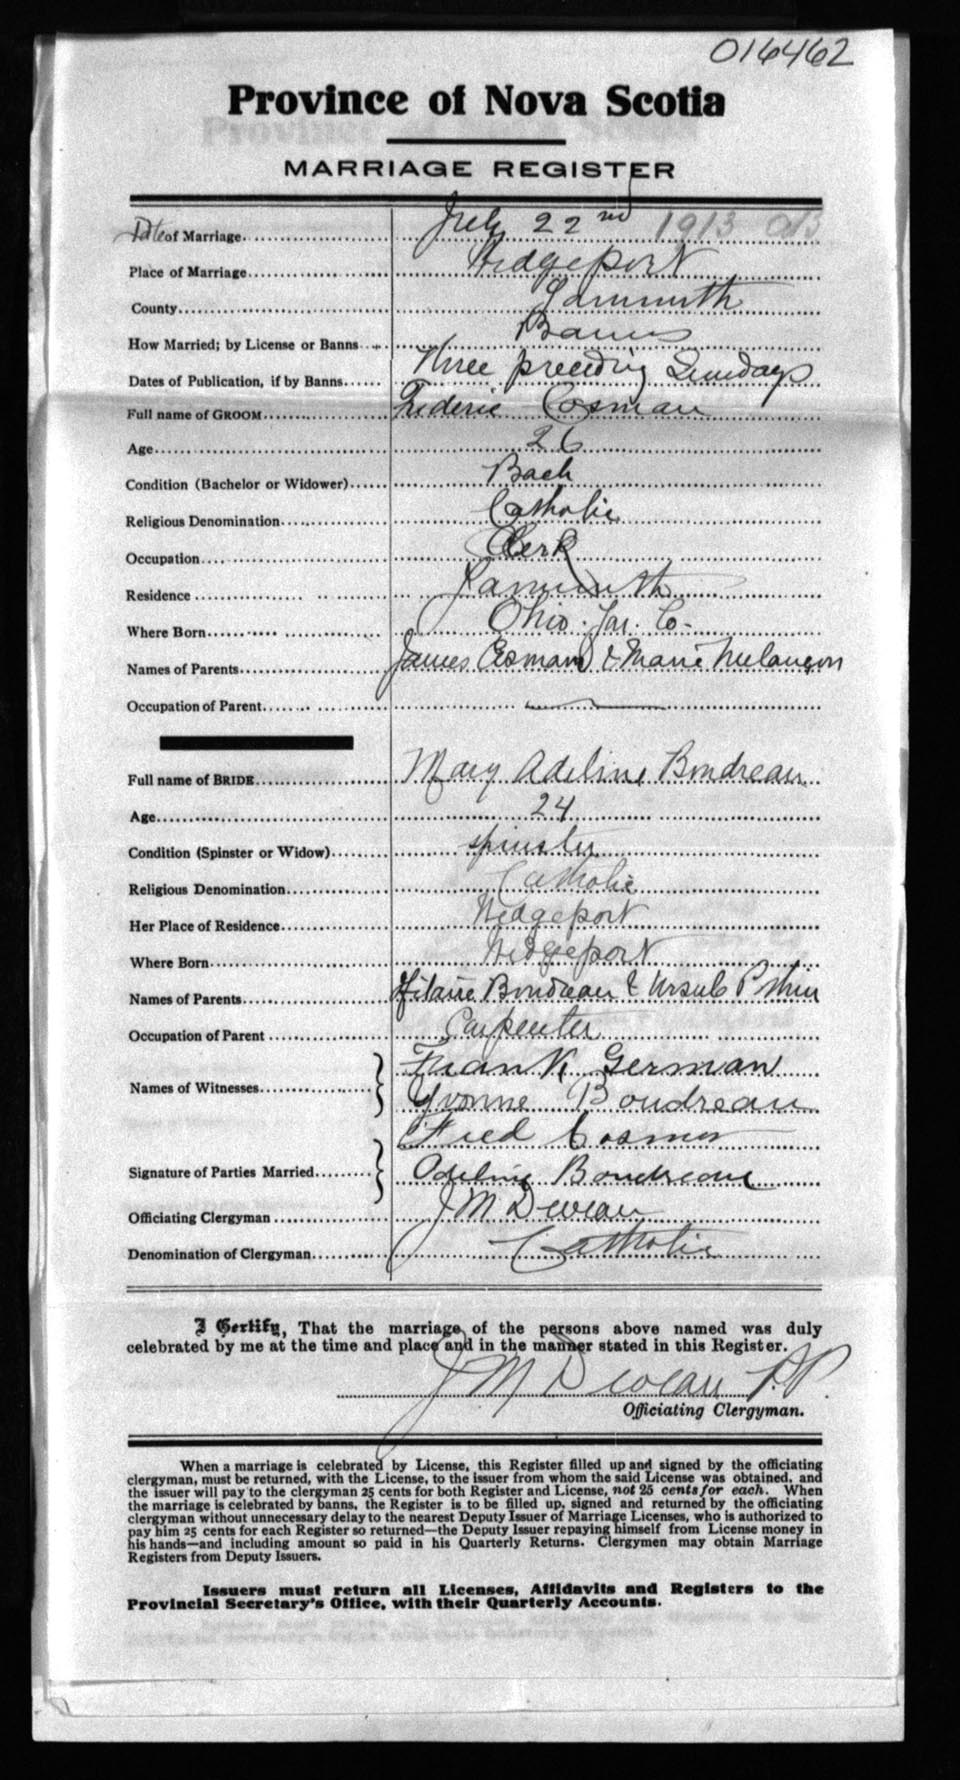 016462
Province of Nova Scotia
MARRIAGE REGISTER
Date of Marriage July 22nd 1913
Place of Marriage Wedgeport
County Yarmouth
How Married; by License or Banns Banns
Dates of Publication, if by Banns Three preceding Sundays
Full name of GROOM Frederic Cosman
Age 26
Condition (Bachelor or Widower) Bach
Religious Denomination Catholic
Occupation Clerk
Residence Yarmouth
Where Born Ohio. Yar. Co-
Names of Parents James Cosman & Marie Melançon
Occupation of Parent
Full name of BRIDE Mary Adeline Boudreau
Age 24
Condition (Spinster or Widow) spinster
Religious Denomination Catholic
Her Place of Residence Wedgeport
Where Born Wedgeport
Names of Parents Hilaire Boudreau & Ursule
Occupation of Parent Carpenter
Names of Witnesses Frank German
Yvonne Boudreau
Fred Cosman
Signature of Parties Married Adeline Boudreau
Officiating Clergyman J M Deveau
Denomination of Clergyman Catholic
I Certify, That the marriage of the persons above named was duly
celebrated by me at the time and place and in the manner stated in this Register.
J M Deveau P.P.
Officiating Clergyman.
When a marriage is celebrated by License, this Register filled up and signed by the officiating
clergyman, must be returned, with the License, to the issuer from whom the said License was obtained, and
the issuer will pay to the clergyman 25 cents for both Register and License, not 25 cents for each. When
the marriage is celebrated by banns, the Register is to be filled up, signed and returned by the officiating
clergyman without unnecessary delay to the nearest Deputy Issuer of Marriage Licenses, who is authorized to
pay him 25 cents for each Register so returned—the Deputy Issuer repaying himself from License money in
his hands—and including amount so paid in his Quarterly Returns. Clergymen may obtain Marriage
Registers from Deputy Issuers.
Issuers must return all Licenses, Affidavits and Registers to the
Provincial Secretary's Office, with their Quarterly Accounts.